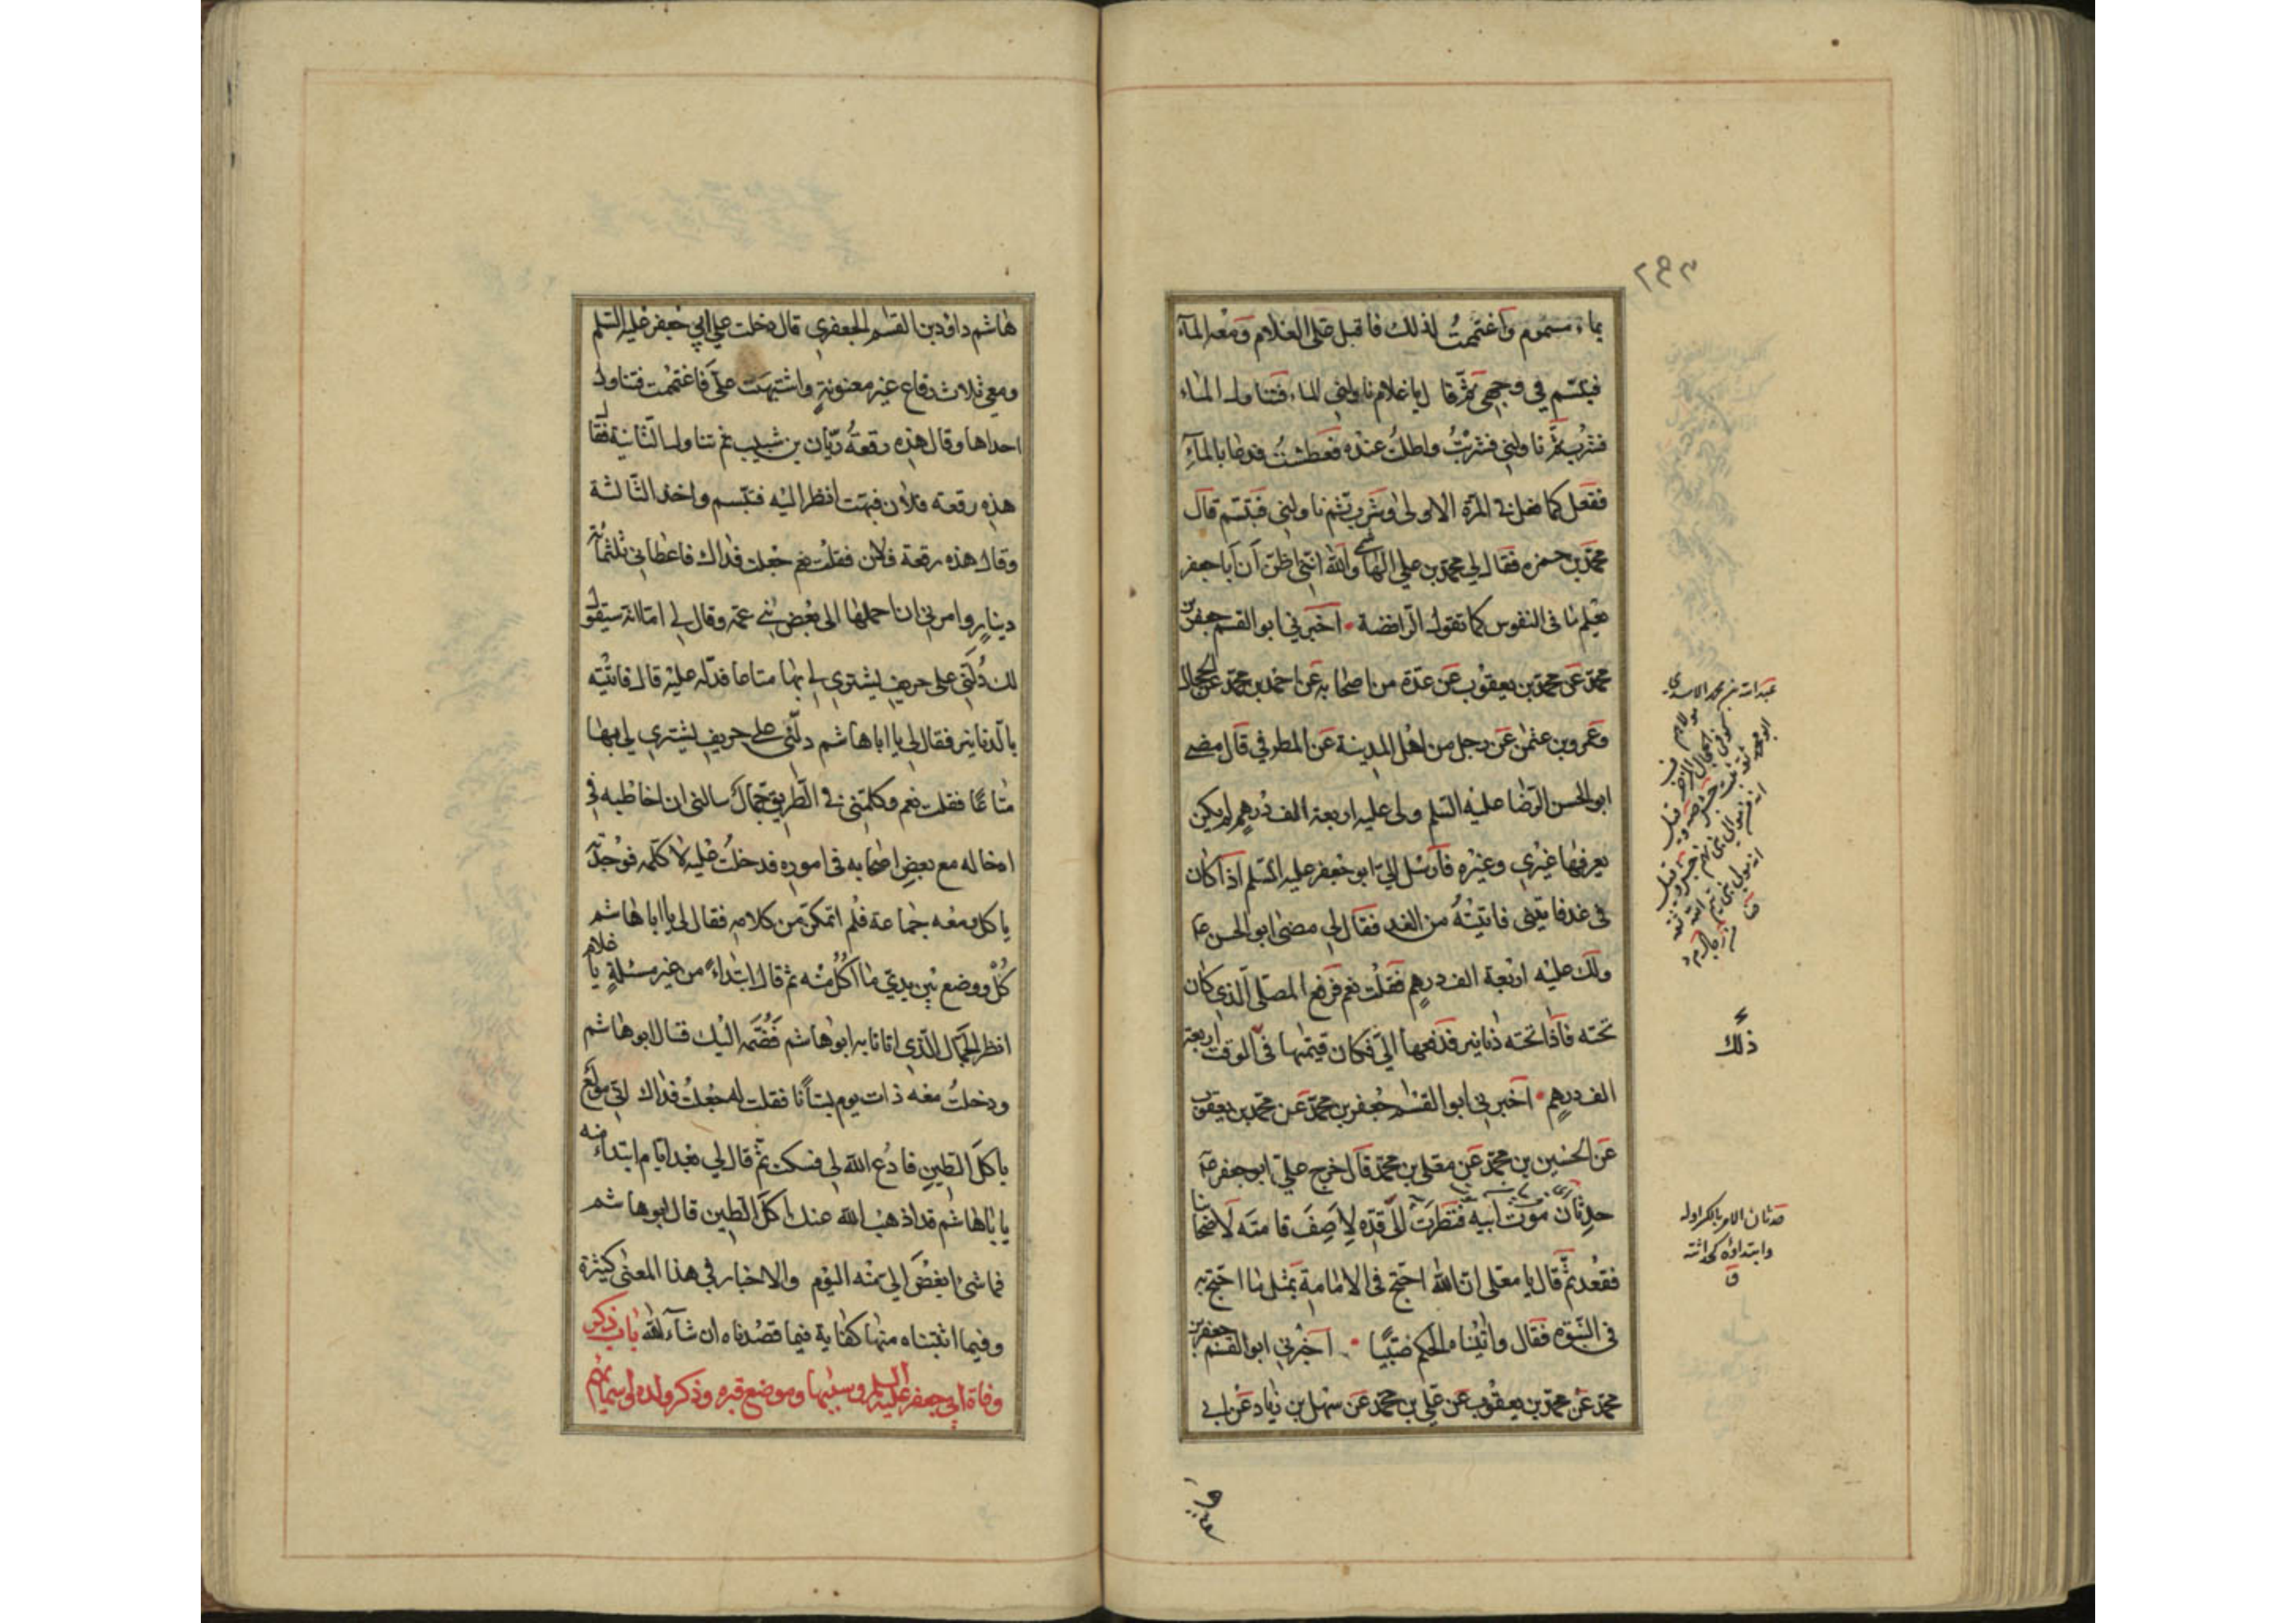 ۲۹۲
بماء مسموم واغتممت لذلك فاقبل على الغلام ومعه الماء
فتبسم في وجهي ثم قال يا غلام ناولني الماء فتناول الماء
فشرب ثم ناولني فشربت واطلت عنده فعطشت فدعا بالماء
ففعل كما فعل في المرة الاولى وشرب ثم ناولني فتبسم قال
محمد بن حمزه فقال لي محمد بن علي الهاشمي والله انني اظن ان ابا جعفر
يعلم ما فى النفوس كما تقول الرافضة اخبرني ابو القسم جعفر بن
محمد عن محمد بن يعقوب عن عدة من اصحابه عن احمد بن محمد عن الحجال
وعمرو بن عثمن عن رجل من اهل المدينة عن المطرفي قال مضى
ابو الحسن الرضا عليه السلم ولى عليه اربعة الف درهم لم يكن
يعرفها غيري وغيره فارسل الي ابو جعفر عليه السلم اذا كان
في غد فاتيني فاتيته من الغد فقال لي مضى ابو الحسن ع
ولك عليه اربعة الف درهم فقلت نعم فرفع المصلى الذي كان
تحته فاذا تحته دنانير فدفعها الي فكان قيمتها في الوقت اربعة
الف درهم اخبرني ابو القسم جعفر بن محمد عن محمد بن يعقوب
عن الحسين بن محمد عن معلى بن محمد قال خرج علي ابو جعفر ع
حدثان موت ابيه فنظرت الى قده لاصف قامته لاصحابنا
فقعد ثم قال يا معلى ان الله احتج في الامامة بمثل ما احتج به
في النبوه فقال واتيناه الحكم صبيا اخبرني ابو القسم جعفر بن
محمد عن محمد بن يعقوب عن علي بن محمد عن سهل بن زياد عن ابي
عبد الله بن محمد الاسدي
ذلك
حدثان الامر بالكسر اوله
وابتداؤه كحداثته
ق
هاشم داود بن القسم الجعفري قال دخلت على ابي جعفر عليه السلم
ومعي ثلاث رقاع غير معنونة واشتبهت علي فاغتممت فتناول
احداها وقال هذه رقعة ريان بن شبيب ثم تناول الثانية فقال
هذه رقعة فلان فبهت انظر اليه فتبسم واخذ الثالثة
وقال هذه رقعة فلان فقلت نعم جعلت فداك فاعطاني ثلثمائة
دينار وامرني ان احملها الى بعض بني عمه وقال لي اما انه سيقول
لك دلني على حريف يشتري لي بها متاعا فدله عليه قال فاتيته
بالدنانير فقال لي يا ابا هاشم دلني على حريف يشتري لي بها
متاعا فقلت نعم وكلمني في الطريق جمال سالني ان اخاطبه في
ادخاله مع بعض اصحابه في اموره فدخلت عليه لاكلمه فوجدته
ياكل ومعه جماعة فلم اتمكن من كلامه فقال لي يا ابا هاشم
كل ووضع بين يدي ما اكل منه ثم قال ابتداء من غير مسئلة يا غلام
انظر الجمال الذي اتانا به ابو هاشم فضمه اليك قال ابو هاشم
ودخلت معه ذات يوم بستانا فقلت له جعلت فداك اني مولع
باكل الطين فادع الله لي فسكت ثم قال لي بعد ايام ابتداء منه
يا با هاشم قد اذهب الله عنك اكل الطين قال ابو هاشم
فما شئ ابغض الي منه اليوم والاخبار في هذا المعنى كثيرة
وفيما اثبتناه منها كفاية فيما قصدناه ان شآء الله باب ذكر
وفاة ابي جعفر عليه السلم وسببها وموضع قبره وذكر ولده